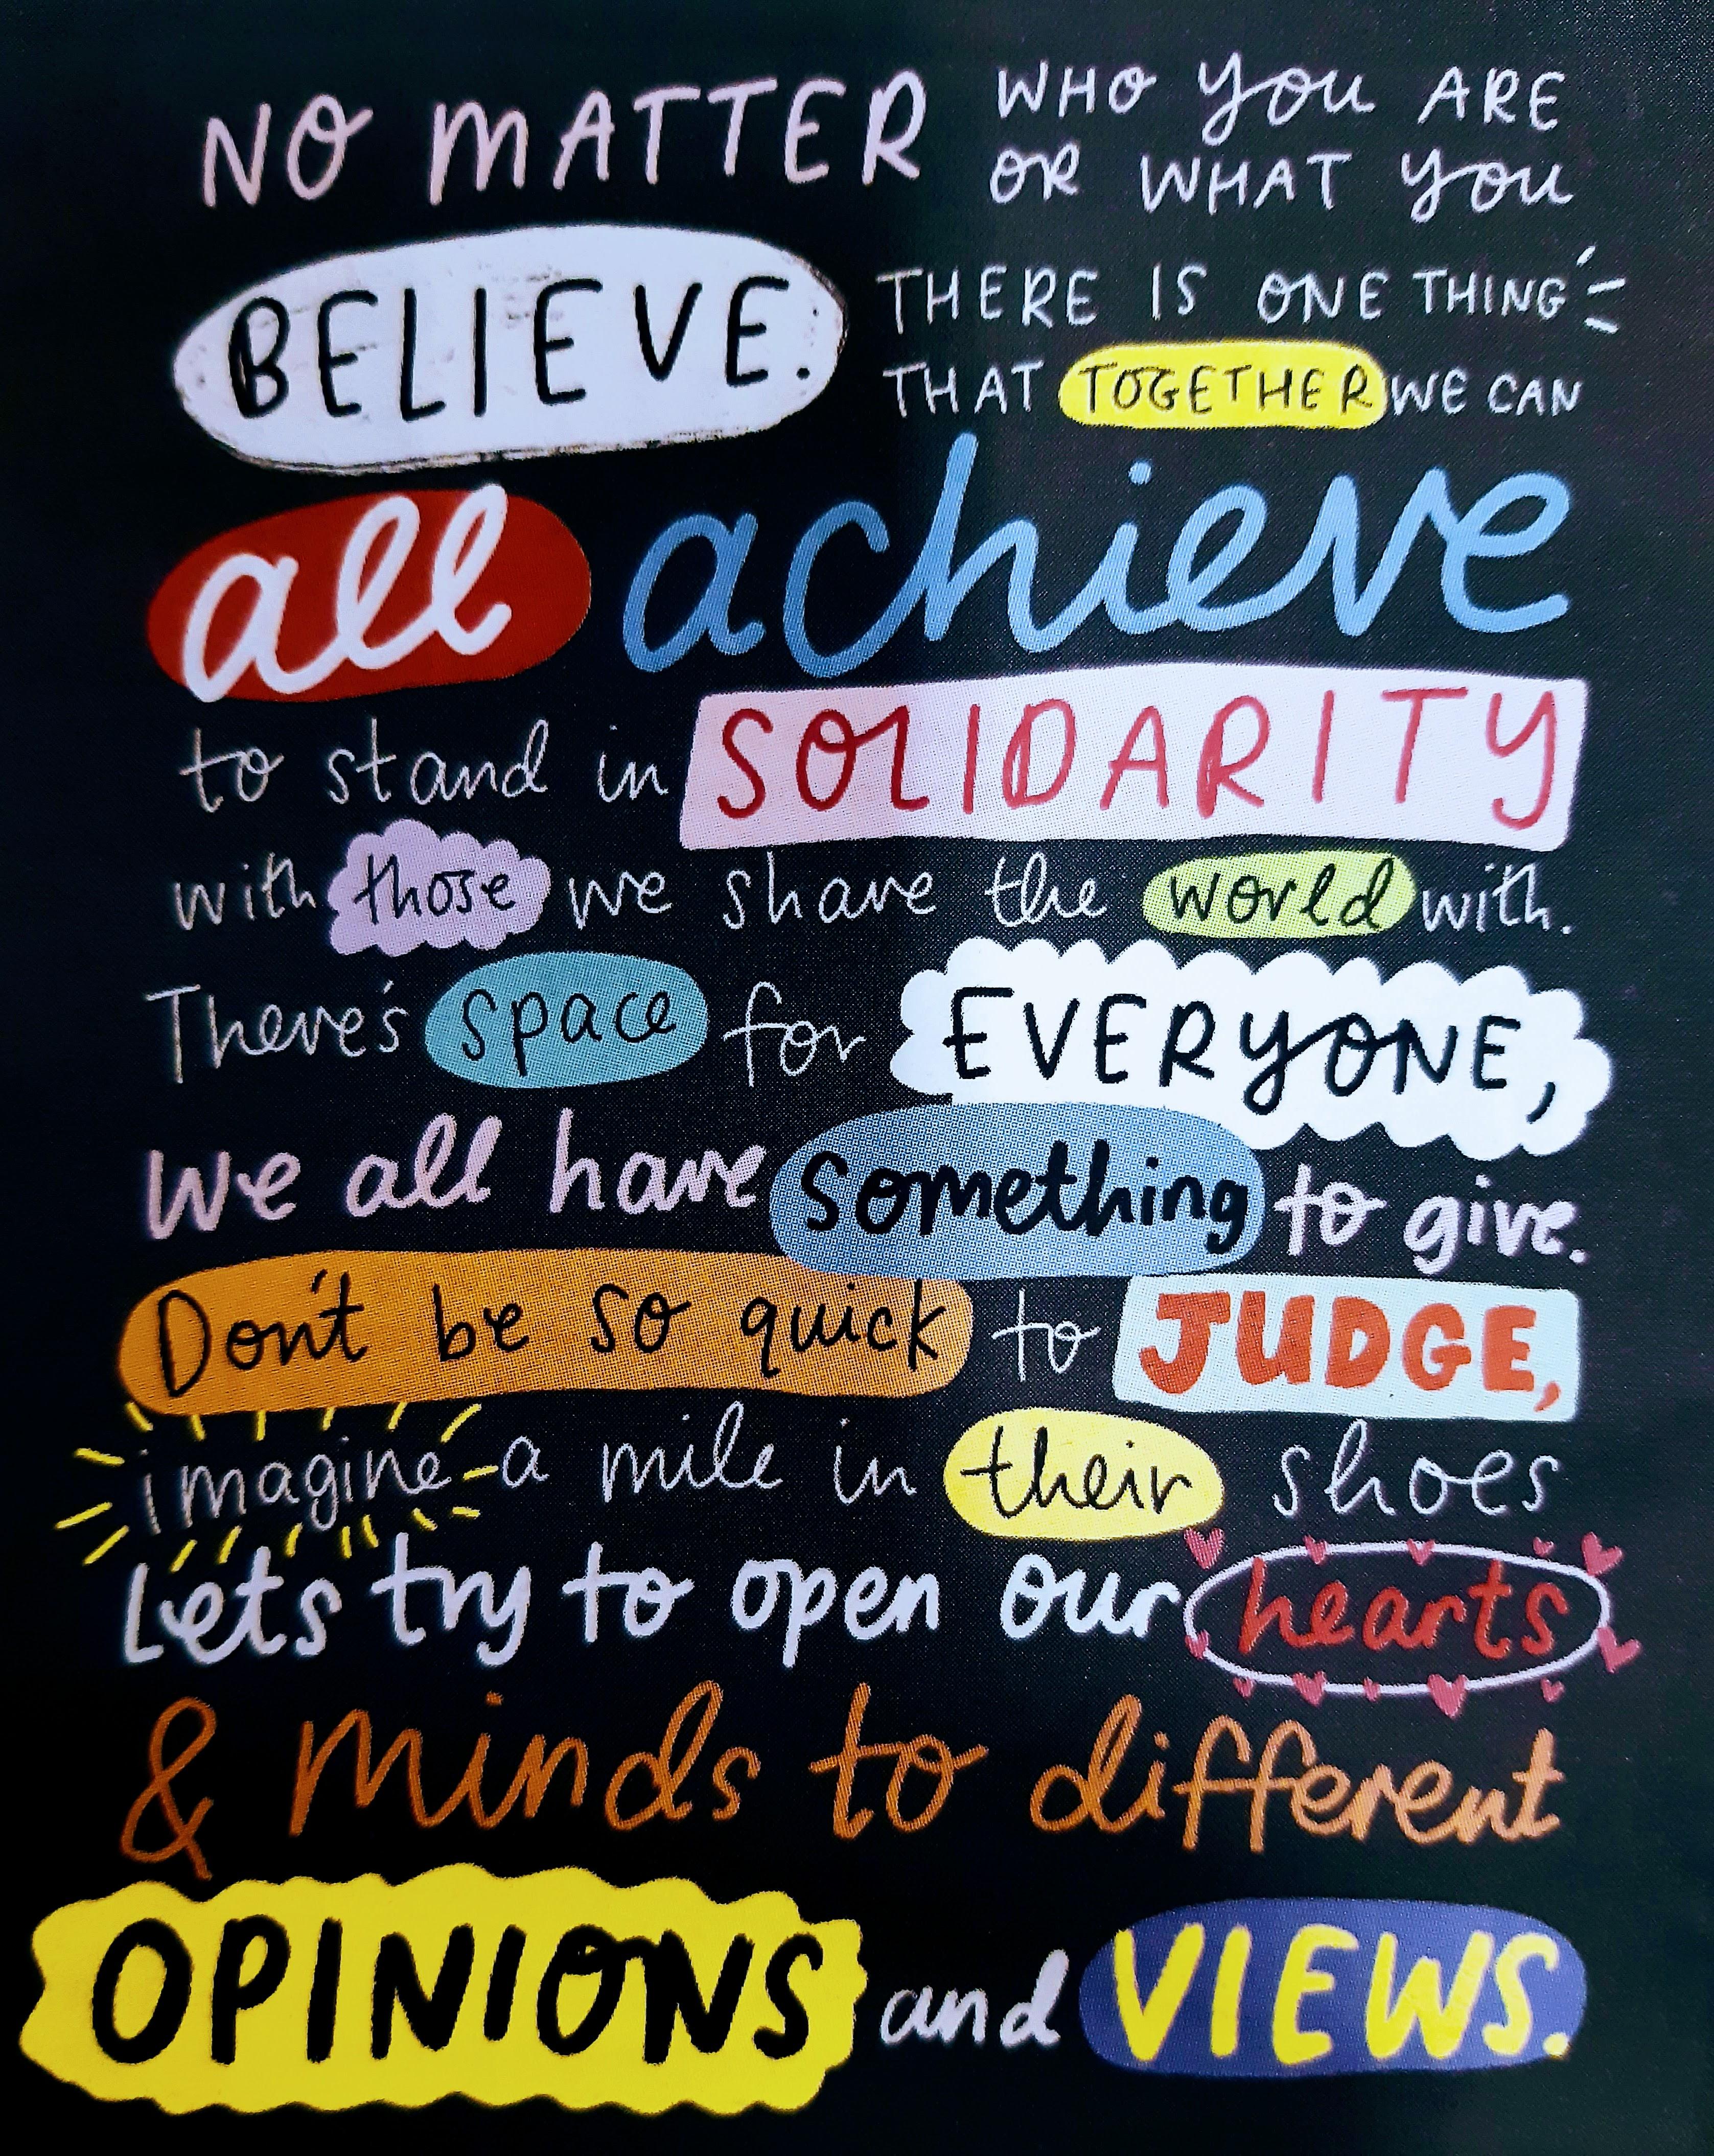 NO MATTER WHO YOU ARE
OR WHAT YOU
BELIEVE. THERE IS ONE THING
THAT TOGETHER WE CAN
all achieve
to stand in SOLIDARITY
with those we share the world with.
There's space for EVERYONE,
We all have something to give.
Don't be so quick to JUDGE,
imagine a mile in their shoes
Lets try to open our hearts
& minds to different
OPINIONS and VIEWS.